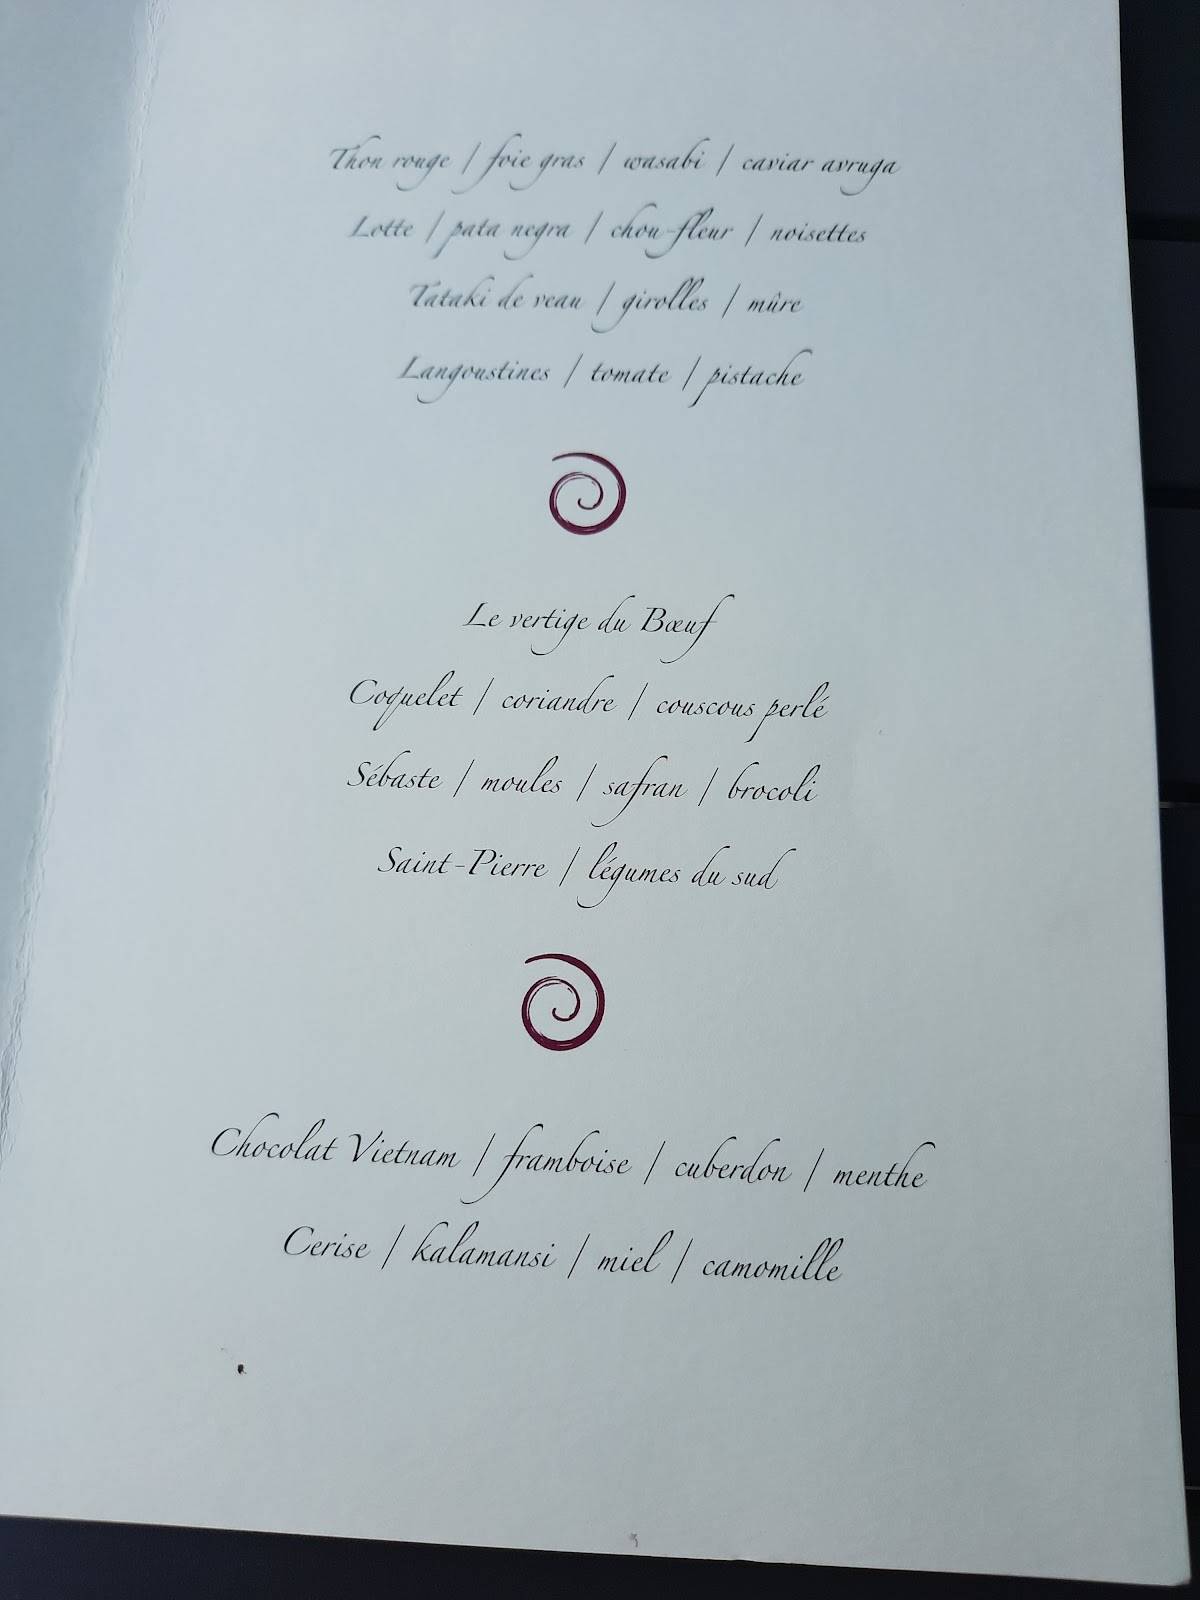 Thon rouge | foie gras | wasabi | caviar avruga
Lotte | pata negra | chou-fleur | noisettes
Tataki de veau | girolles | mûre
Langoustines | tomate | pistache
Le vertige du Bœuf
Coquelet | coriandre | couscous perlé
Sébaste | moules | safran | brocoli
Saint-Pierre | légumes du sud
Chocolat Vietnam | framboise | cuberdon | menthe
Cerise | kalamansi | miel | camomille